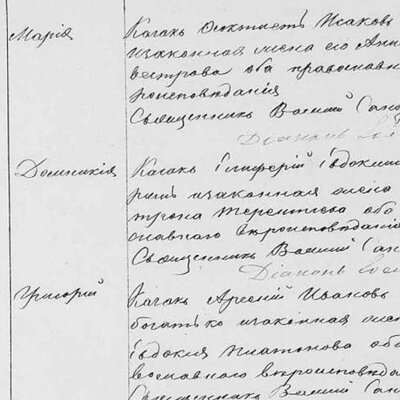 Марія
Казакъ Феоктистъ Исаковъ
и законная жена его Анн
вестрова оба православн
роисповѣданія
Священникъ Василій
Діаконъ
Домникія
Казакъ Елиферій Евдоким
и законная жена
Терентьева оба
славнаго вѣроисповѣданія
Священникъ Василій
Діаконъ
Григорій
Казакъ Арсеній Ивановъ
богатко и законная жена
Евдокія Платонова оба
вославнаго вѣроисповѣда
Священникъ Василій